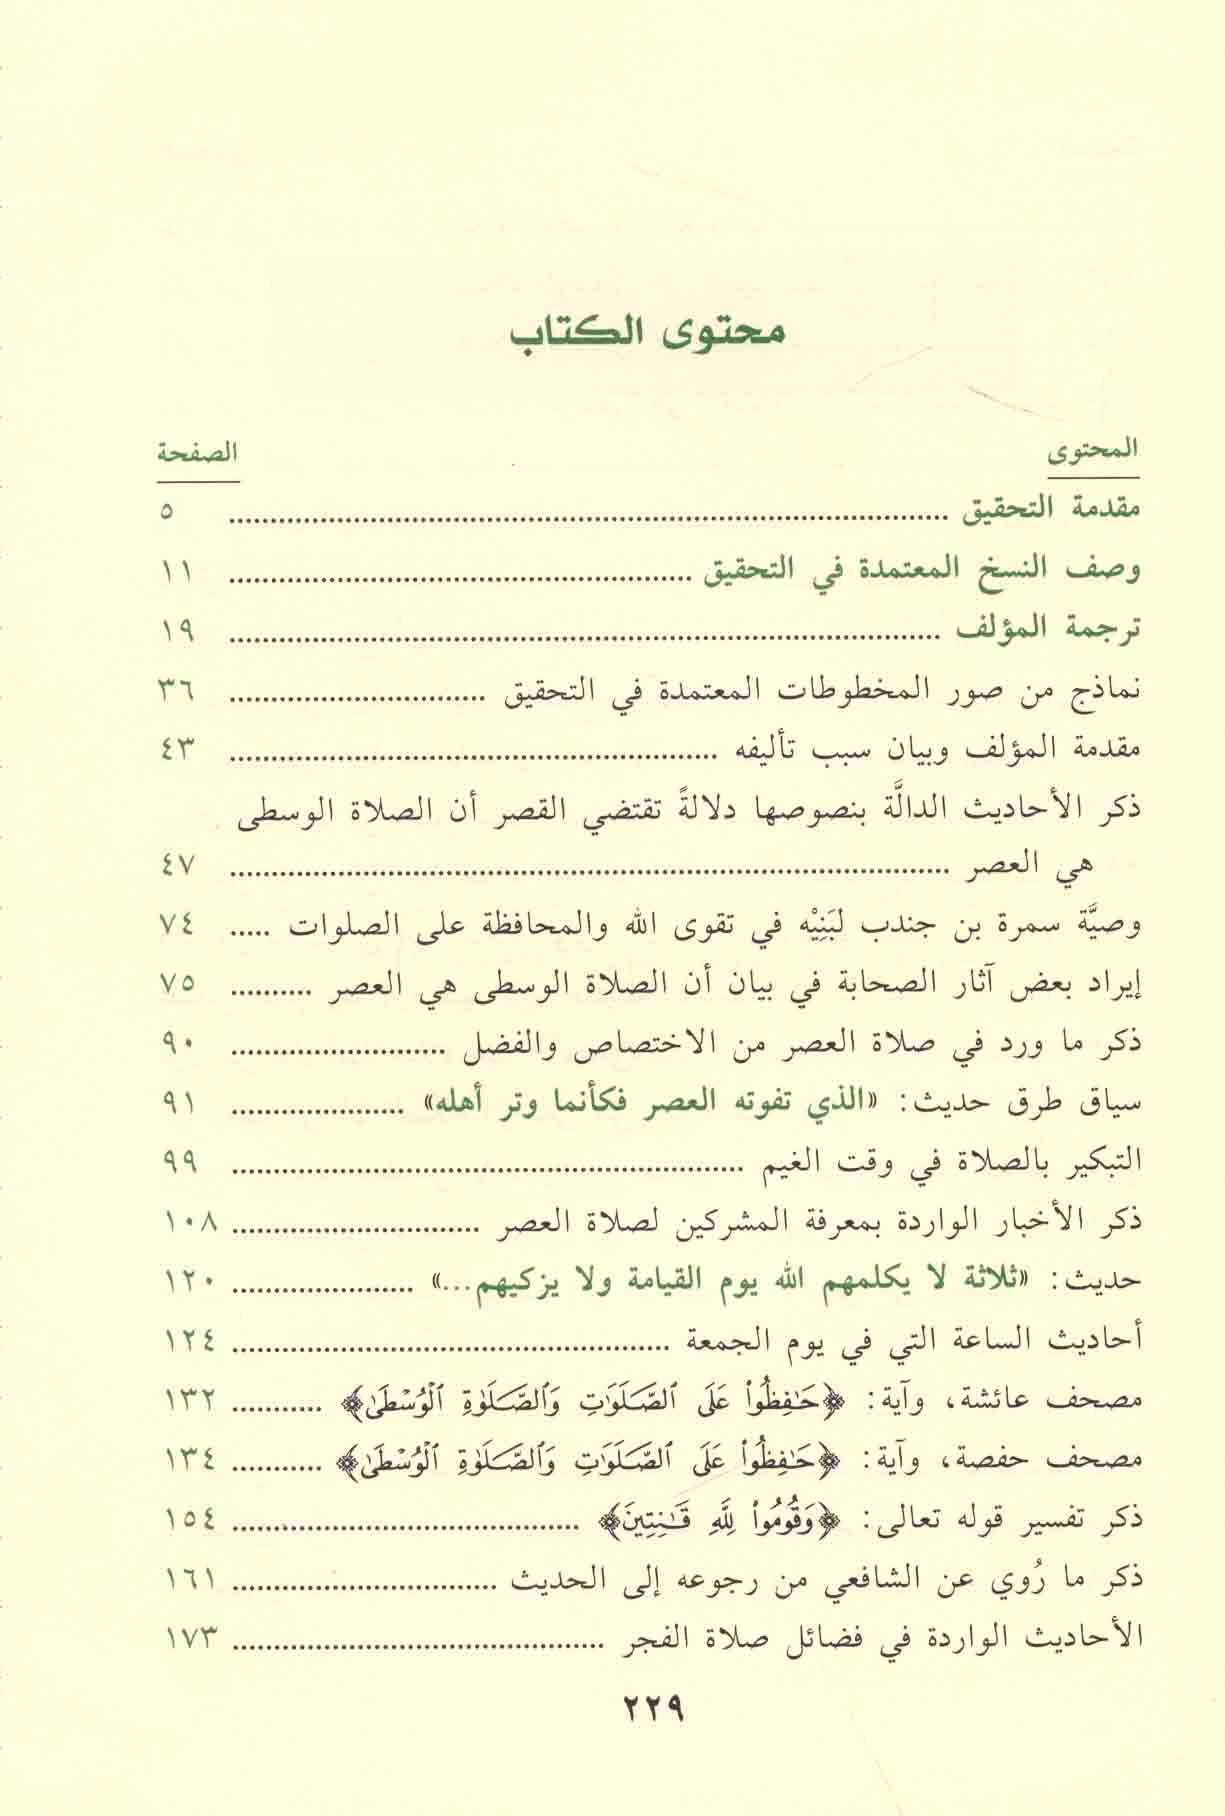 محتوى الكتاب
المحتوى الصفحة
مقدمة التحقيق ........ ٥
وصف النسخ المعتمدة في التحقيق ........ ١١
ترجمة المؤلف ........ ١٩
نماذج من صور المخطوطات المعتمدة في التحقيق ........ ٣٦
مقدمة المؤلف وبيان سبب تأليفه ........ ٤٣
ذكر الأحاديث الدالَّة بنصوصها دلالةً تقتضي القصر أن الصلاة الوسطى
هي العصر ........ ٤٧
وصيَّة سمرة بن جندب لبَنِيْه في تقوى الله والمحافظة على الصلوات ..... ٧٤
إيراد بعض آثار الصحابة في بيان أن الصلاة الوسطى هي العصر ........ ٧٥
ذكر ما ورد في صلاة العصر من الاختصاص والفضل ........ ٩٠
سياق طرق حديث: «الذي تفوته العصر فكأنما وتر أهله» ........ ٩١
التبكير بالصلاة في وقت الغيم ........ ٩٩
ذكر الأخبار الواردة بمعرفة المشركين لصلاة العصر ........ ١٠٨
حديث: «ثلاثة لا يكلمهم الله يوم القيامة ولا يزكيهم...» ........ ١٢٠
أحاديث الساعة التي في يوم الجمعة ........ ١٢٤
مصحف عائشة، وآية: ﴿حَٰفِظُوا۟ عَلَى ٱلصَّلَوَٰتِ وَٱلصَّلَوٰةِ ٱلْوُسْطَىٰ﴾ ........ ١٣٢
مصحف حفصة، وآية: ﴿حَٰفِظُوا۟ عَلَى ٱلصَّلَوَٰتِ وَٱلصَّلَوٰةِ ٱلْوُسْطَىٰ﴾ ........ ١٣٤
ذكر تفسير قوله تعالى: ﴿وَقُومُوا۟ لِلَّهِ قَٰنِتِينَ﴾ ........ ١٥٤
ذكر ما رُوي عن الشافعي من رجوعه إلى الحديث ........ ١٦١
الأحاديث الواردة في فضائل صلاة الفجر ........ ١٧٣
٢٢٩